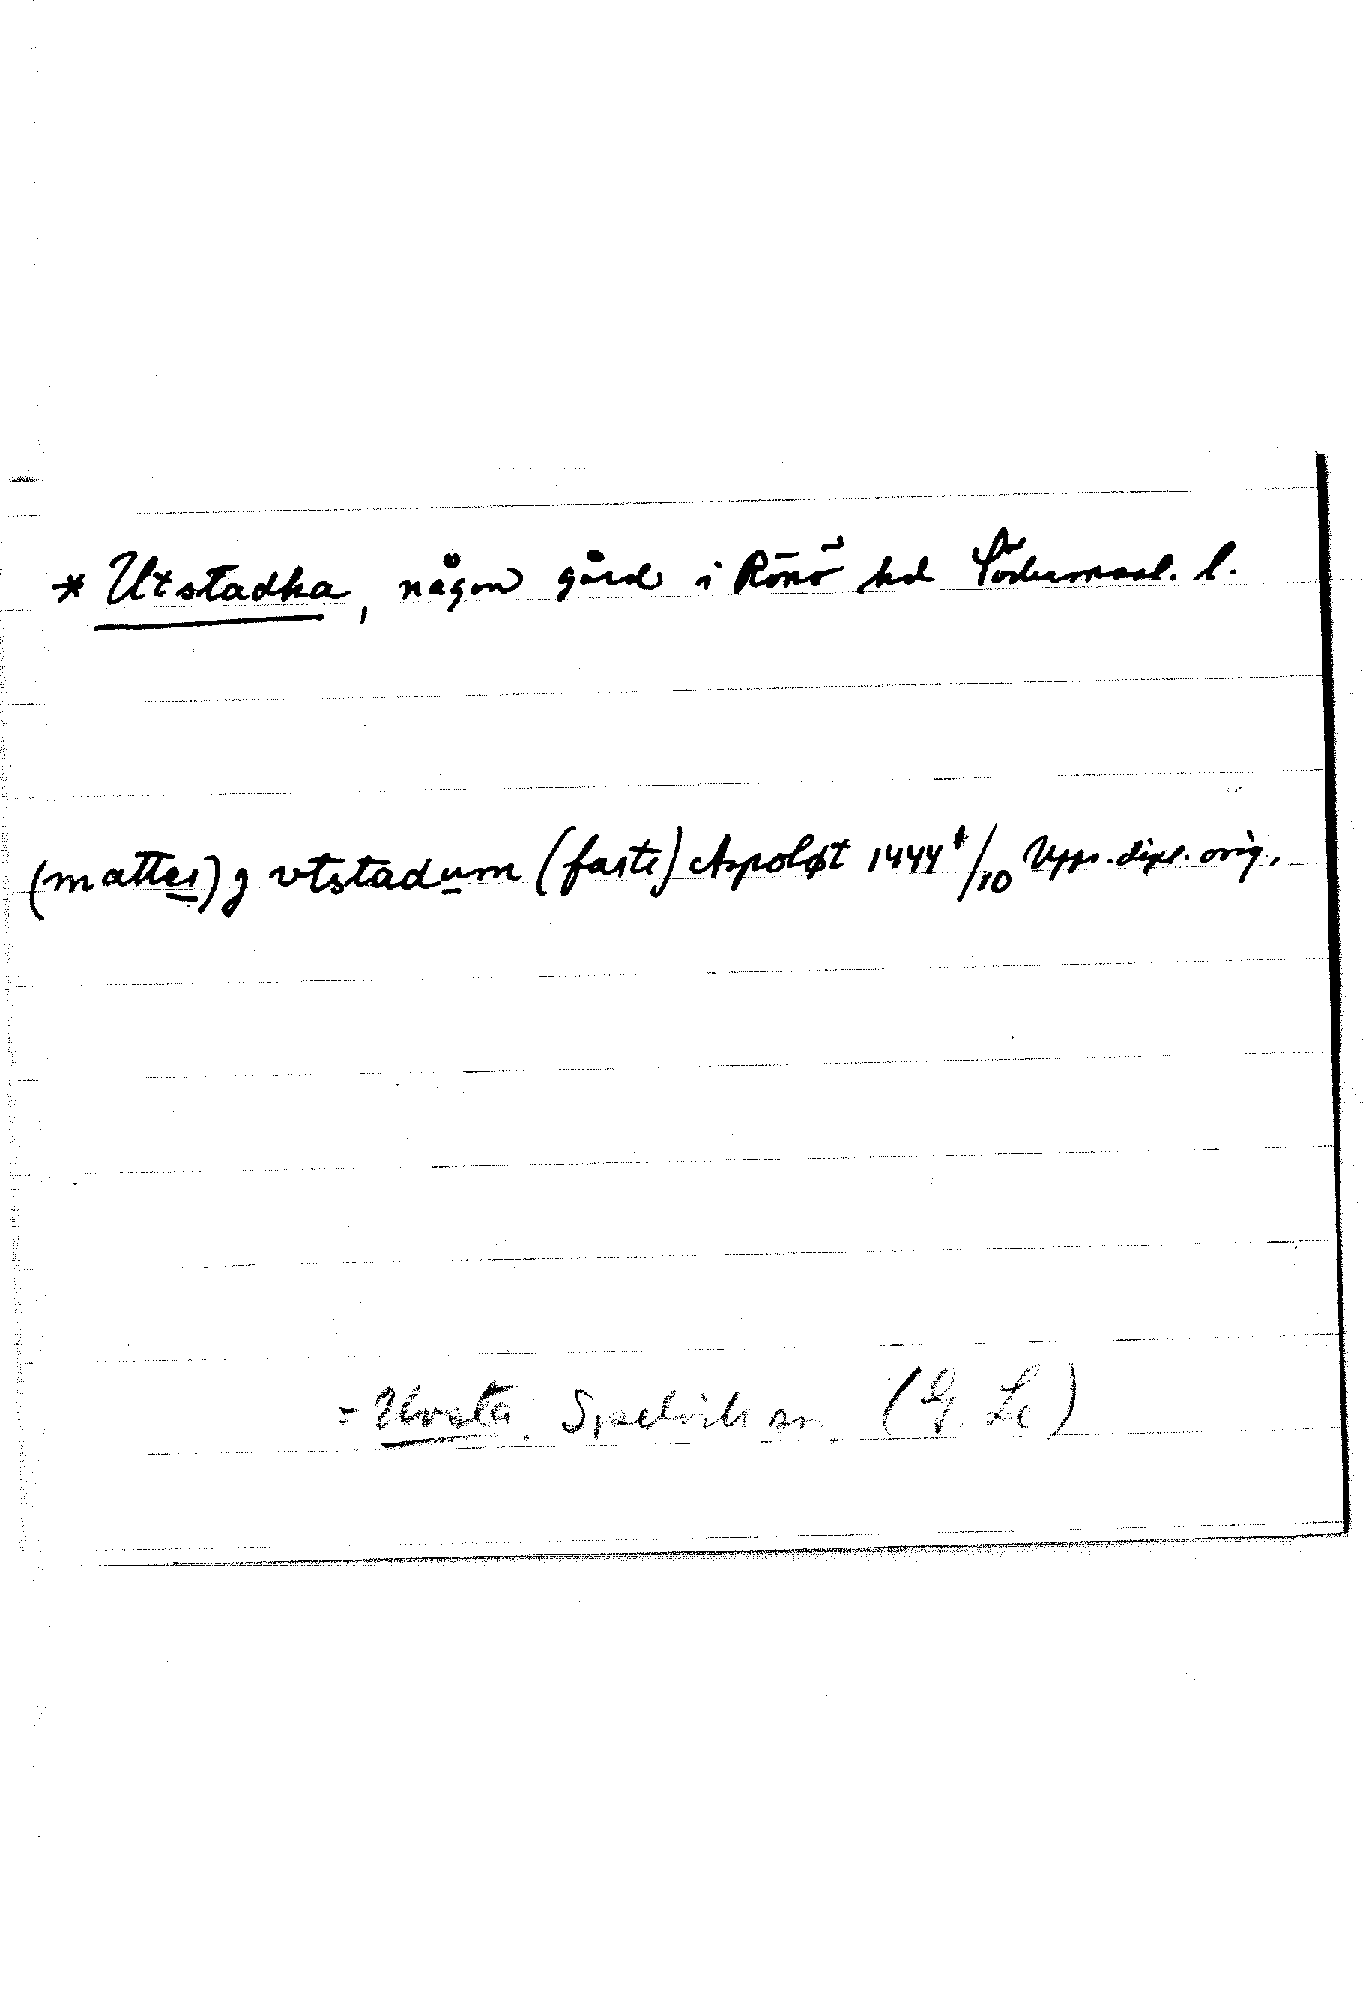 * Utstadha, någon gård i Rönö hd Södermanl. l.
(mattes) j vtstadum (faste) Aspoløt 1444 4/10 Upps. dipl. orig.
= Utvsta. Spelvik sn. (G. Le)